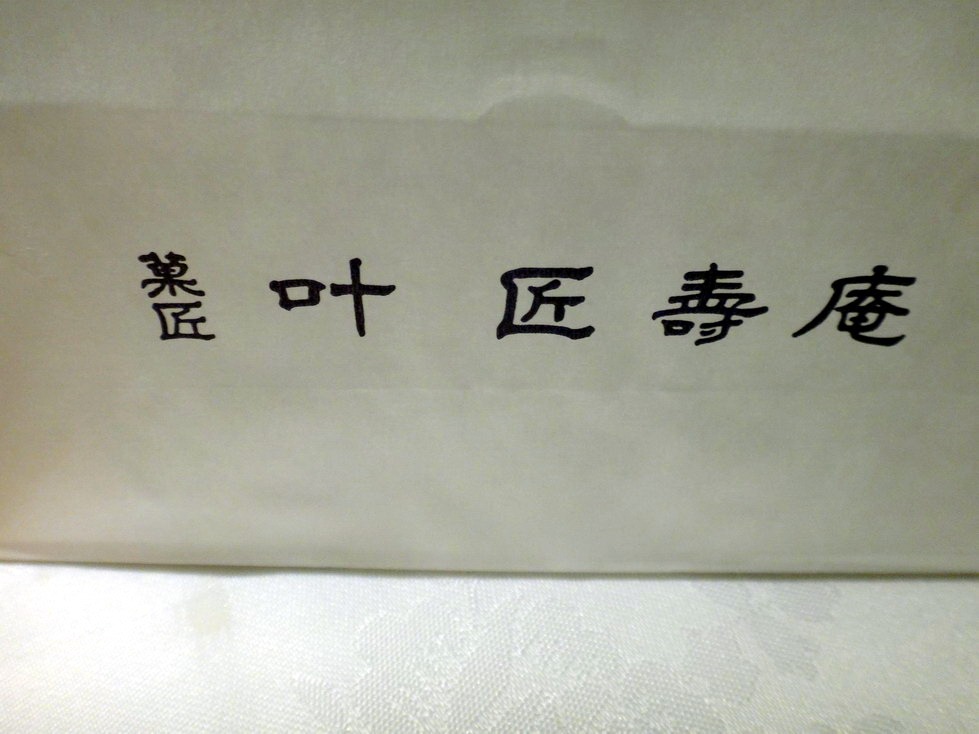 菓匠 叶 匠 壽 庵